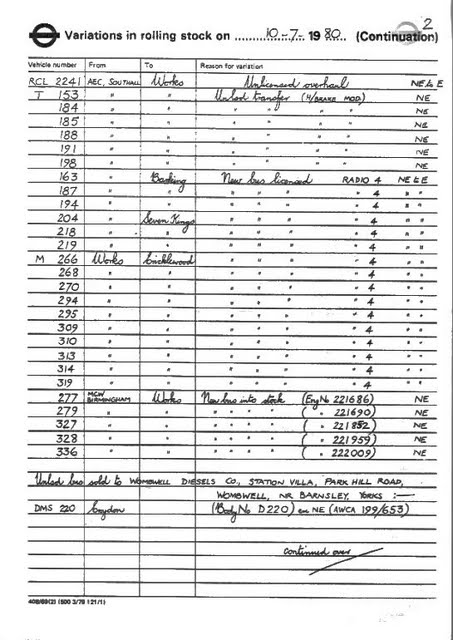 2
Variations in rolling stock on 10-7-1980 (Continuation)
Vehicle number From To Reason for variation
RCL 2241 AEC, SOUTHALL Works Unlicensed overhaul NE & E
T 153 " " Unlsd transfer (H/BRAKE MOD.) NE
184 " " " " " " NE
185 " " " " " " NE
188 " " " " " " NE
191 " " " " " " NE
198 " " " " " " NE
163 " Barking New bus licensed RADIO 4 NE & E
187 " " " " " " 4 " "
194 " " " " " " 4 " "
204 " Seven Kings " " " " 4 " "
218 " " " " " " 4 " "
219 " " " " " " 4 " "
M 266 Works Cricklewood " " " " 4 " "
268 " " " " " " 4 " "
270 " " " " " " 4 " "
294 " " " " " " 4 " "
295 " " " " " " 4 " "
309 " " " " " " 4 " "
310 " " " " " " 4 " "
313 " " " " " " 4 " "
314 " " " " " " 4 " "
319 " " " " " " 4 " "
277 MCW BIRMINGHAM Works New bus into stock (Eng No 221686) NE
279 " " " " " " ( " 221690) NE
327 " " " " " " ( " 221852) NE
328 " " " " " " ( " 221959) NE
336 " " " " " " ( " 222009) NE
Unlsd bus sold to WOMBWELL DIESELS CO., STATION VILLA, PARK HILL ROAD,
WOMBWELL, NR BARNSLEY, YORKS :—
DMS 220 Croydon (Body No D220) ex NE (AWCA 199/653)
continued over
408/69(2) (500 3/79 121/1)